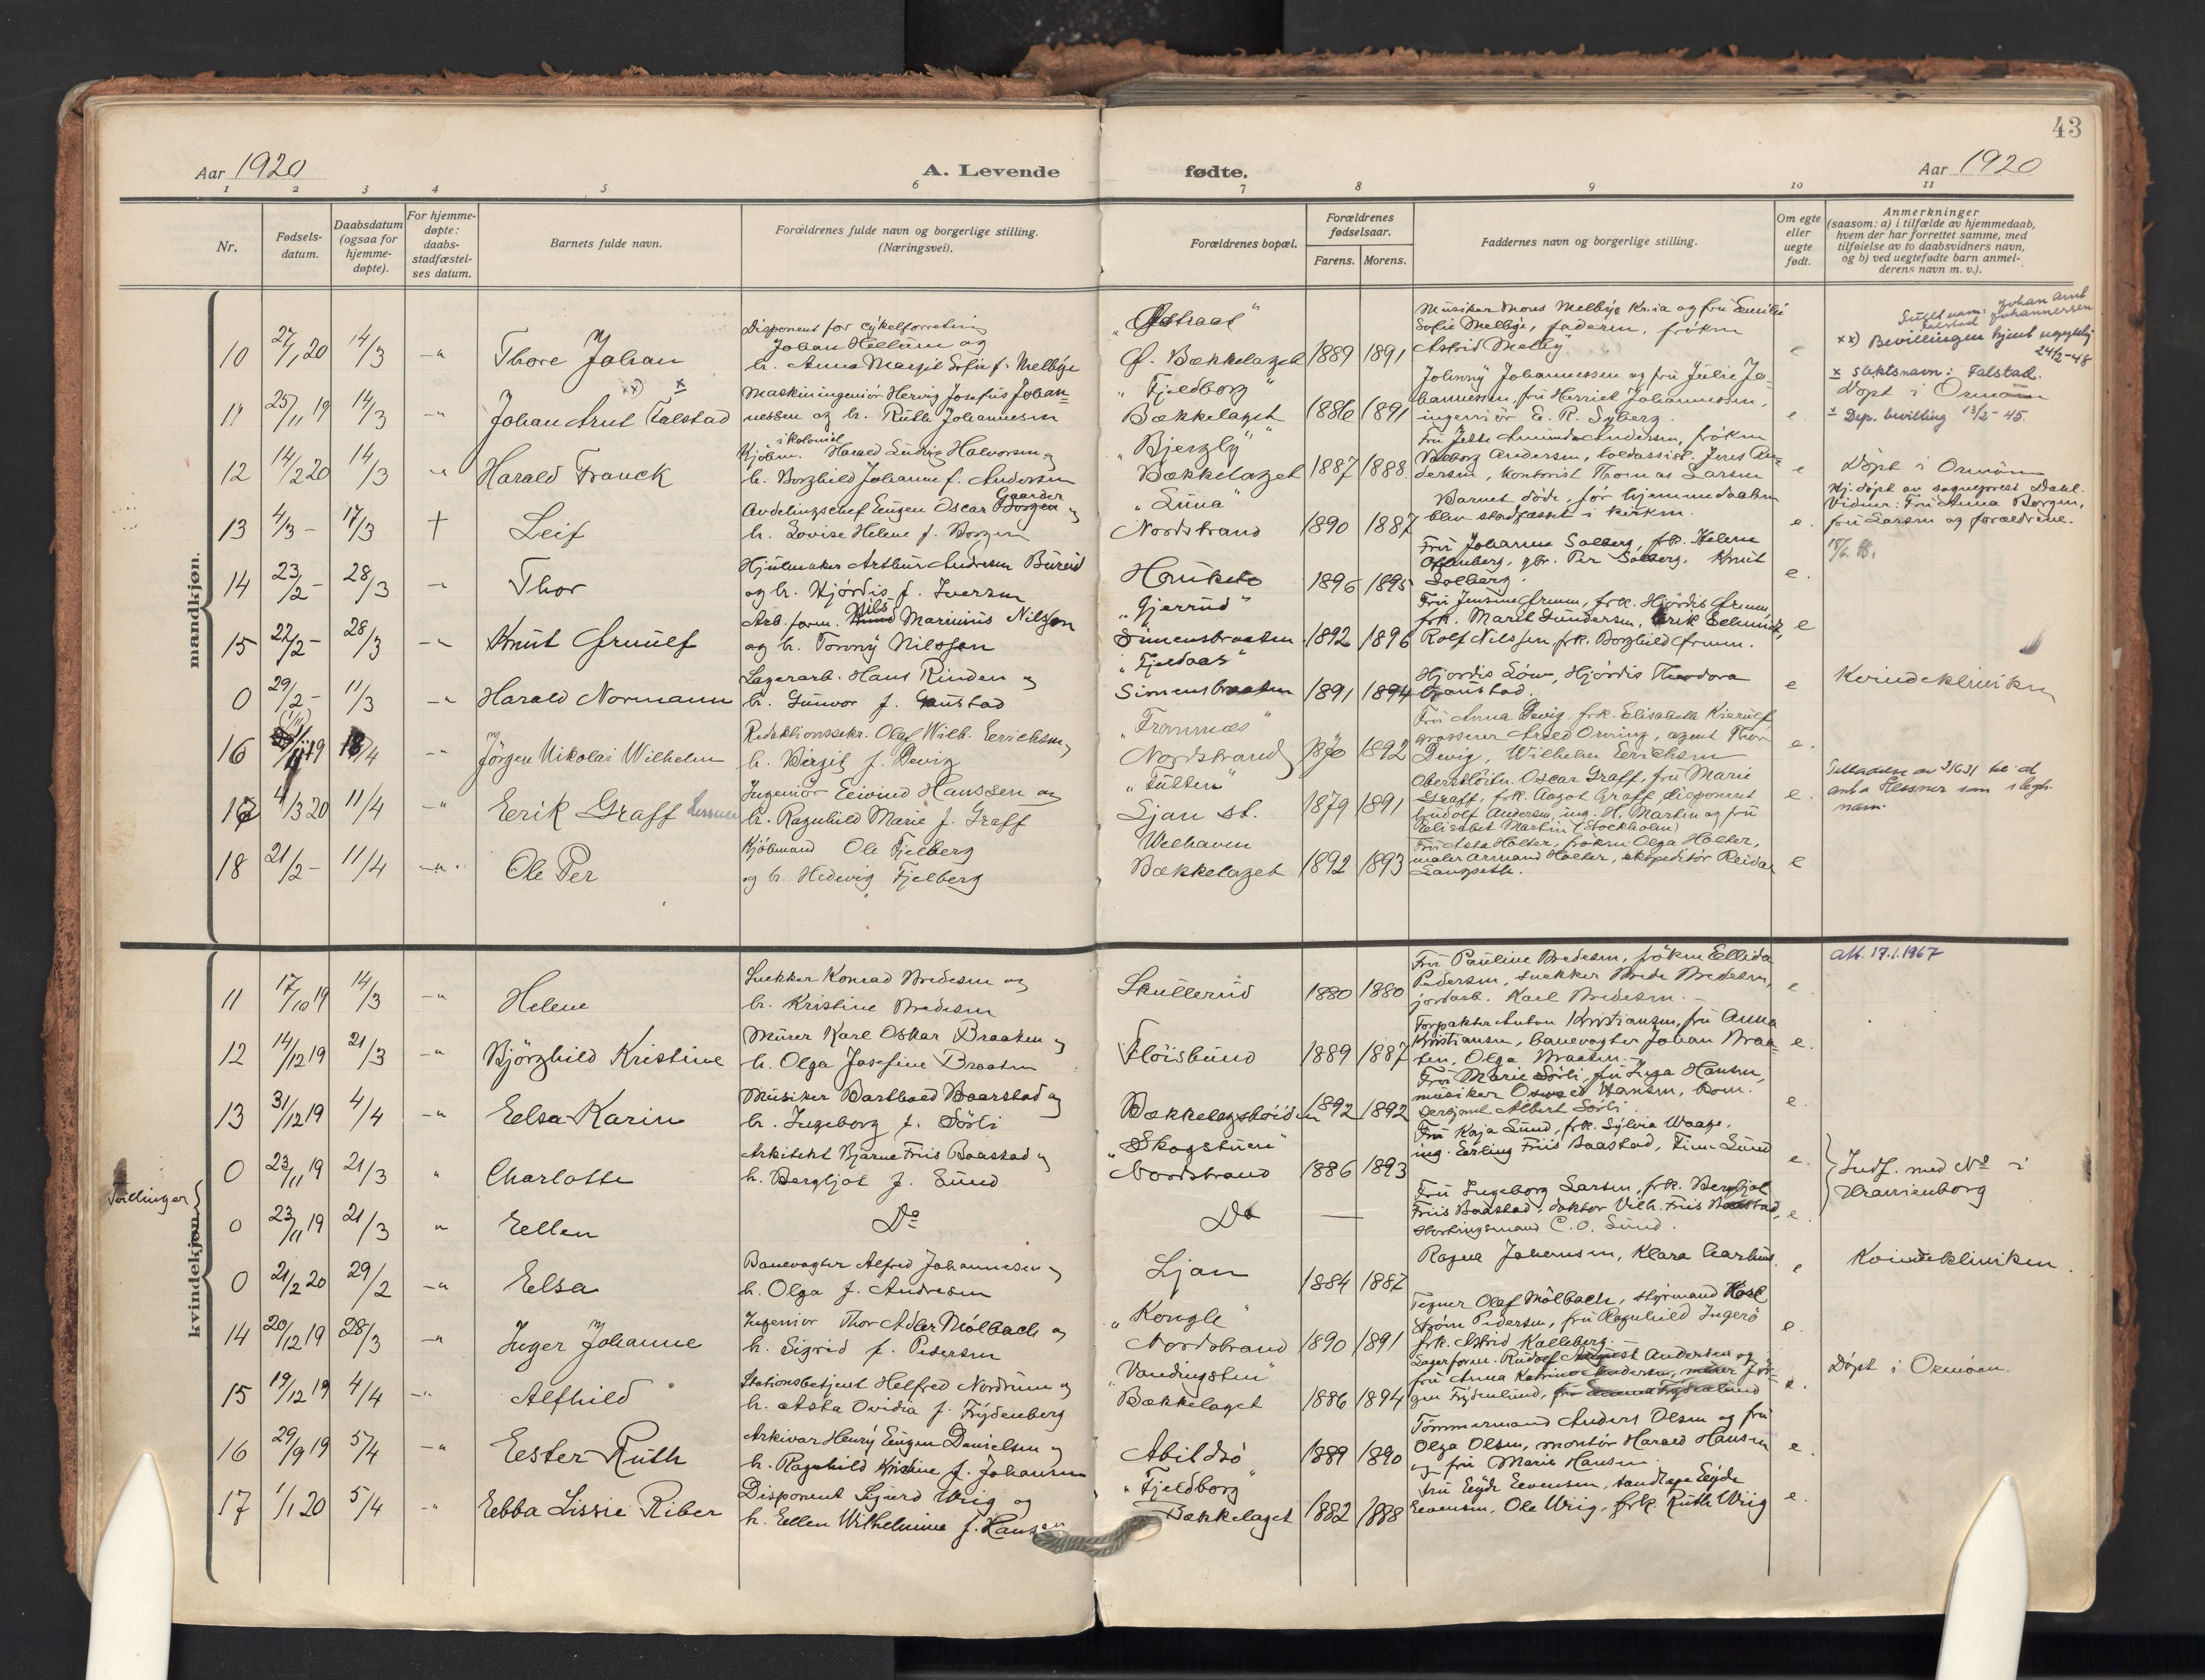 43
Aar 1920
A. Levende fødte.
Aar 1920
1 2 3 4 5 6 7 8 9 10 11
Nr.
Fødsels-
datum.
Daabsdatum
(ogsaa for
hjemme-
døpte).
For hjemme-
døpte:
daabs-
stadfæstel-
ses datum.
Barnets fulde navn.
Forældrenes fulde navn og borgerlige stilling.
(Næringsvei).
Forældrenes bopæl.
Forældrenes
fødselsaar.
Farens. Morens.
Faddernes navn og borgerlige stilling.
Om egte
eller
uegte
født.
Anmerkninger
(saasom: a) i tilfælde av hjemmedaab,
hvem der har forrettet samme, med
tilføielse av to daabsvidners navn,
og b) ved uegtefødte barn anmel-
derens navn m. v.).
mandkjøn.
10 27/1 20 14/3 -"- Thore Johan
Disponent for cykelforretning
Johan Hellum og
h. Anna Margit Sofie f. Melbye
Ø. Bækkelaget 1889 1891
Musiker Mores Melbye Kria og fru Emilie
Sofie Melbye, faderen, frøken
Astrid Melby
e
Fullt navn: Johan Arnt
Falstad Johannessen
xx) Bevillingen kjent ugyldig
24/2-48
11 25/11 19 14/3 -"- Johan Arnt Falstad xx) x
Maskiningeniør Herving Josefus Johan-
nessen og h. Ruth Johannesen
"Fjeldborg"
Bækkelaget 1886 1891
Johnny Johannessen og fru Julie Jo-
hannessen, fru Harriet Johannessen,
ingeniør E. R. Syberg.
e.
x Slektsnavn: Falstad.
Døpt i Ormøen
x Dep. bevilling 13/2-45.
12 14/2 20 14/3 -"- Harald Franck
Kjøbm. Harald Ludvig Halvorsen og
h. Borghild Johanne f. Andersen
"Bjerzly"
Bækkelaget 1887 1888.
Fru Jette Amunda Andersen, frøken
Valborg Andersen, toldassist. Jens An-
dersen, Kontorist Thomas Larsen
e
Døpt i Ormøen
13 4/3 - 17/3 † Leif
Avdelingschef Eugen Oscar Gaarder Borgen og
h. Lovise Helene f. Borgen
"Luna"
Nordstrand 1890 1887
Barnet døde, før hjemmedaaben
blev stadfæstet i kirken.
e.
Hj. døpt av sogneprest Dahl.
Vidner: Fru Anna Borgen,
fru Larsen og forældrene.
14 23/2 - 28/3 -"- Thor
Hjulmaker Arthur Andresen Bureid
og h. Hjørdis f. Iversen
Hauketo 1896 1895
Fru Johanne Solberg, frk. Helene
Offenberg, gbr. Per Solberg, Knut
Solberg.
e.
15 22/2 - 28/3 -"- Knut Grunulf
Arb. form. Nils Marinius Nilsson
og h. Tonny Nilsson
"Gjerrud"
Simensbraaten 1892 1896
Rolf Nilssen, frk. Borghild
e
0 29/2 - 11/3 -"- Harald Normann
Lagerarb. Hans Rinden og
h. Gunvor f. Gaustad
"Fjeldaas"
Simensbraaten 1891 1894
Hjørdis Løw, Hjørdis Theodora
Gaustad.
e
Kvindeklinikken
16 19 18/4 -"- Jørgen Nikolai Wilhelm
Redaktionssekr. Olaf Wilh. Erichsen og
h. Birgit f. Devig
"Tromnæs"
Nordstrand 1890 1892
Fru Anna Devig, frk. Elisabeth Kierulf,
grosserer Arild Orning, agent Thor
Devig, Wilhelm Erichsen
e.
17 4/3 20 11/4 -"- Erik Graff
Ingeniør Eivind Hanssen og
h. Ragnhild Marie f. Graff
"Tutten"
Ljan st. 1879 1891
Oberstløitn. Oscar Graff, fru Marie
Graff, frk. Aagot Graff, disponent
Gudolf Andersen, ing. H. Martin og fru
Elisabet Martin (Stockholm)
e.
18 21/2 - 11/4 -"- Ole Per
Kjøbmand Ole Fjelberg
og h. Hedevig Fjelberg
Welhaven
Bækkelaget 1892 1893
Fru Asta Holter, frøken Olga Holter,
maler Armand Holter, ekspeditør Reidar
Langseth.
e
kvindekjøn.
11 17/10 19 14/3 -"- Helene
Snekker Konrad Bredesen og
h. Kristine Bredesen
Skullerud 1880 1880
Fru Pauline Bredesen, frøken Ellida
Pedersen, snekker Brede Bredesen,
jordarb. Karl Bredesen.
e.
Att. 17.1.1967
12 14/12 19 21/3 -"- Bjørghild Kristine
Murer Karl Oskar Braaten og
h. Olga Josefine Braaten
Fløisbund 1889 1887
Forpakter Anton Kristiansen, fru Anna
Kristiansen, banevogter Johan Braa-
ten, Olga Braaten.
e.
13 31/12 19 4/4 -"- Elsa Karin
Musiker Barthold Baarstad og
h. Ingeborg f. Sørli
Bækkelagshøiden 1892 1892
Fru Marie Sørli, fru Inga Hansen,
musiker Oswald Hansen, kom.
sergjant Albert Sørli
e.
Tvillinger
0 23/11 19 21/3 " Charlotte
Arkitekt Bjarne Friis Baastad og
h. Bergljot f. Sund
"Skogstuen"
Nordstrand 1886 1893
Fru Kaja Sund, frk. Sylvia Waage,
ing. Erling Friis Baastad, Finn Sund
e.
Indf. med No i
Uranienborg
0 23/11 19 21/3 " Ellen
Do
Do —
Fru Ingeborg Larsen, frk. Bergljot
Friis Baastad, doktor Vilh. Friis Baastad,
stortingsmand C. O. Sund.
e.
0 21/2 20 29/2 -"- Elsa
Banevogter Alfred Johannesen og
h. Olga f. Andresen
Ljan 1884 1887
Ragna Johansen, Klara Aarhus.
e
Kvindeklinikken.
14 20/12 19 28/3 -"- Inger Johanne
Ingeniør Thor Adler Mølbach og
h. Sigrid f. Pedersen
"Kongle"
Nordstrand 1890 1891
Tegner Olaf Mølbach, styrmand Karl
Strøm Pedersen, fru Ragnhild Ingerø
frk. Astrid Kalleberg.
e.
15 19/12 19 4/4 -"- Alfhild
Stationsbetjent Helfred Nordrum og
h. Asta Ovidia f. Frydenberg
Bækkelaget 1886 1894
Lagerform. Rudolf August Andersen og
fru Anna Katrine Andersen, murer Jør-
gen Frydenlund, fru Emma Frydenlund
e.
Døpt i Ormøen.
16 29/9 19 5/4 -"- Ester Ruth
Arkivar Henry Eugen Danielsen og
h. Ragnhild Kristine f. Johansen
Abildsø 1889 1890
Tømmermand Anders Olsen og fru
Olga Olsen, montør Harald Hansen
og fru Marie Hansen.
e.
17 1/1 20 5/4 -"- Ebba Lissie Riber
Disponent Sigurd Wiig og
h. Ellen Wilhelmine f. Hansen
"Fjeldborg"
Bækkelaget 1882 1888
Evensen, Ole Wiig, frk. Ruth Wiig
e.